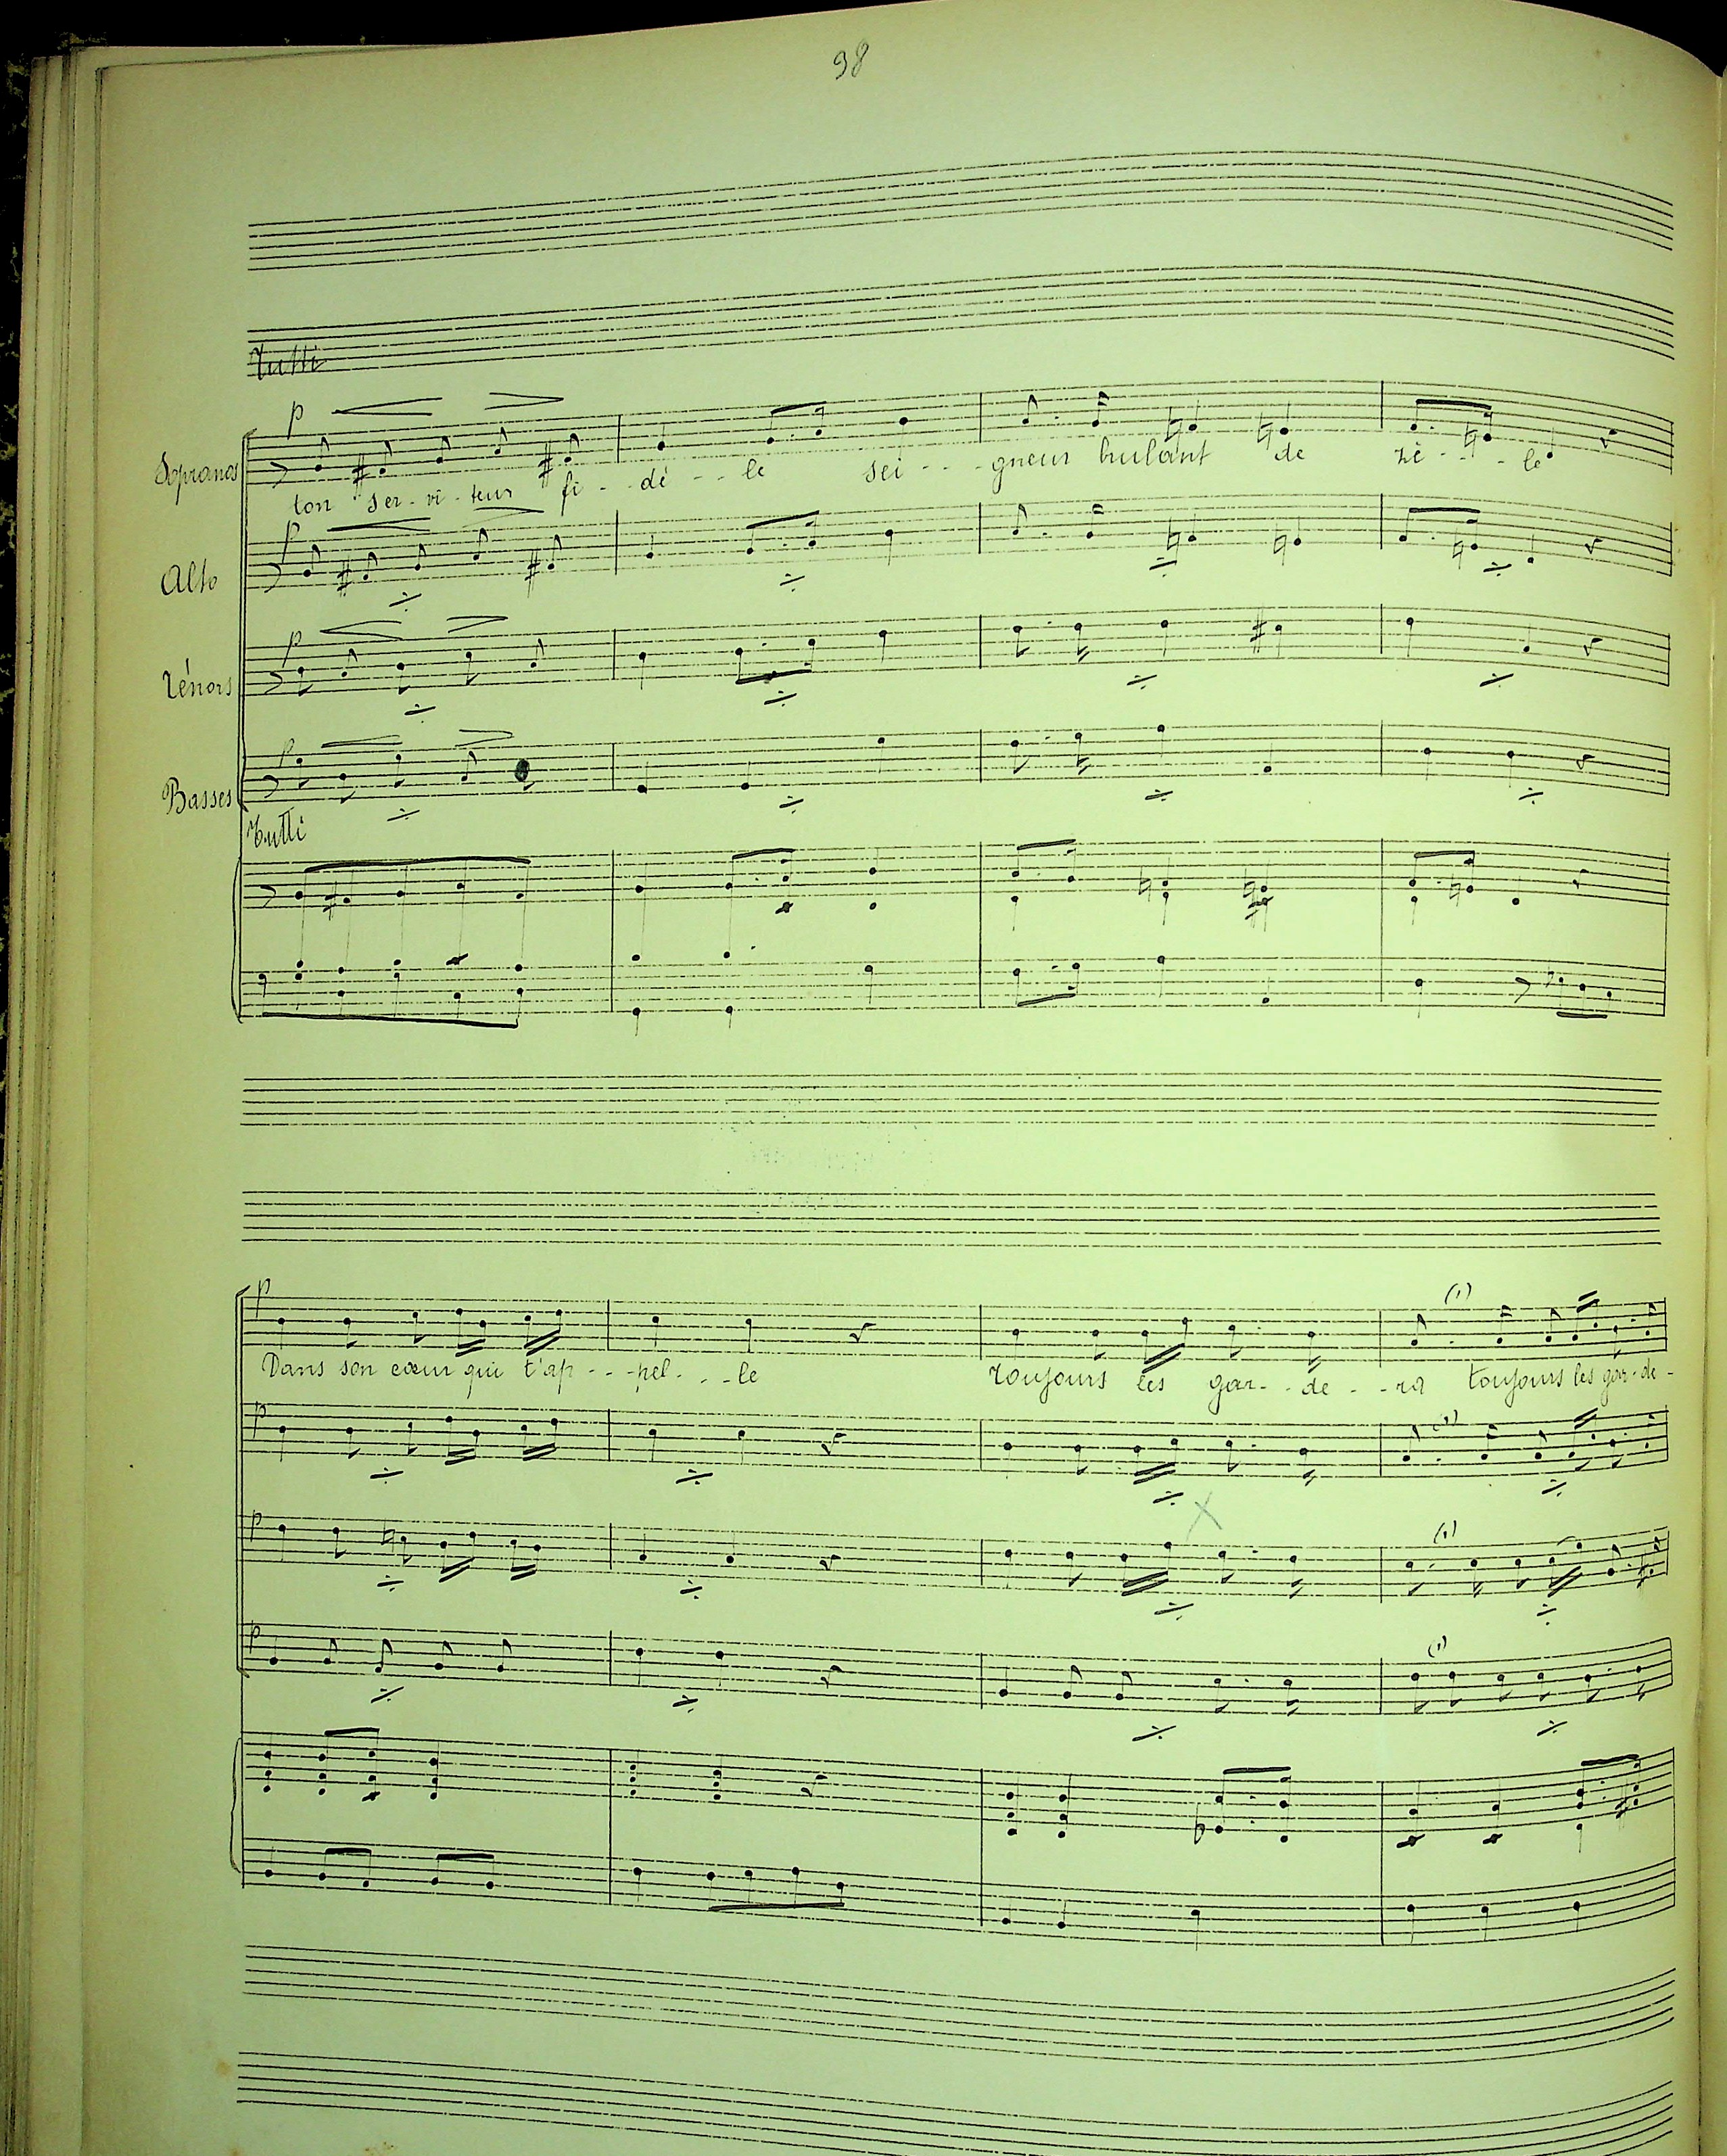 98
Tutti
p
Sopranos
ton ser-vi-teur fi--dè--le sei---gneur brulant de zè----le
p
Alto
p
Ténors
p
Basses
Tutti
p
(1)
Dans son cœur qui t'ap---pel---le Toujours les gar--de--ra toujours les gar-de-
p
(1)
p
(1)
p
(1)